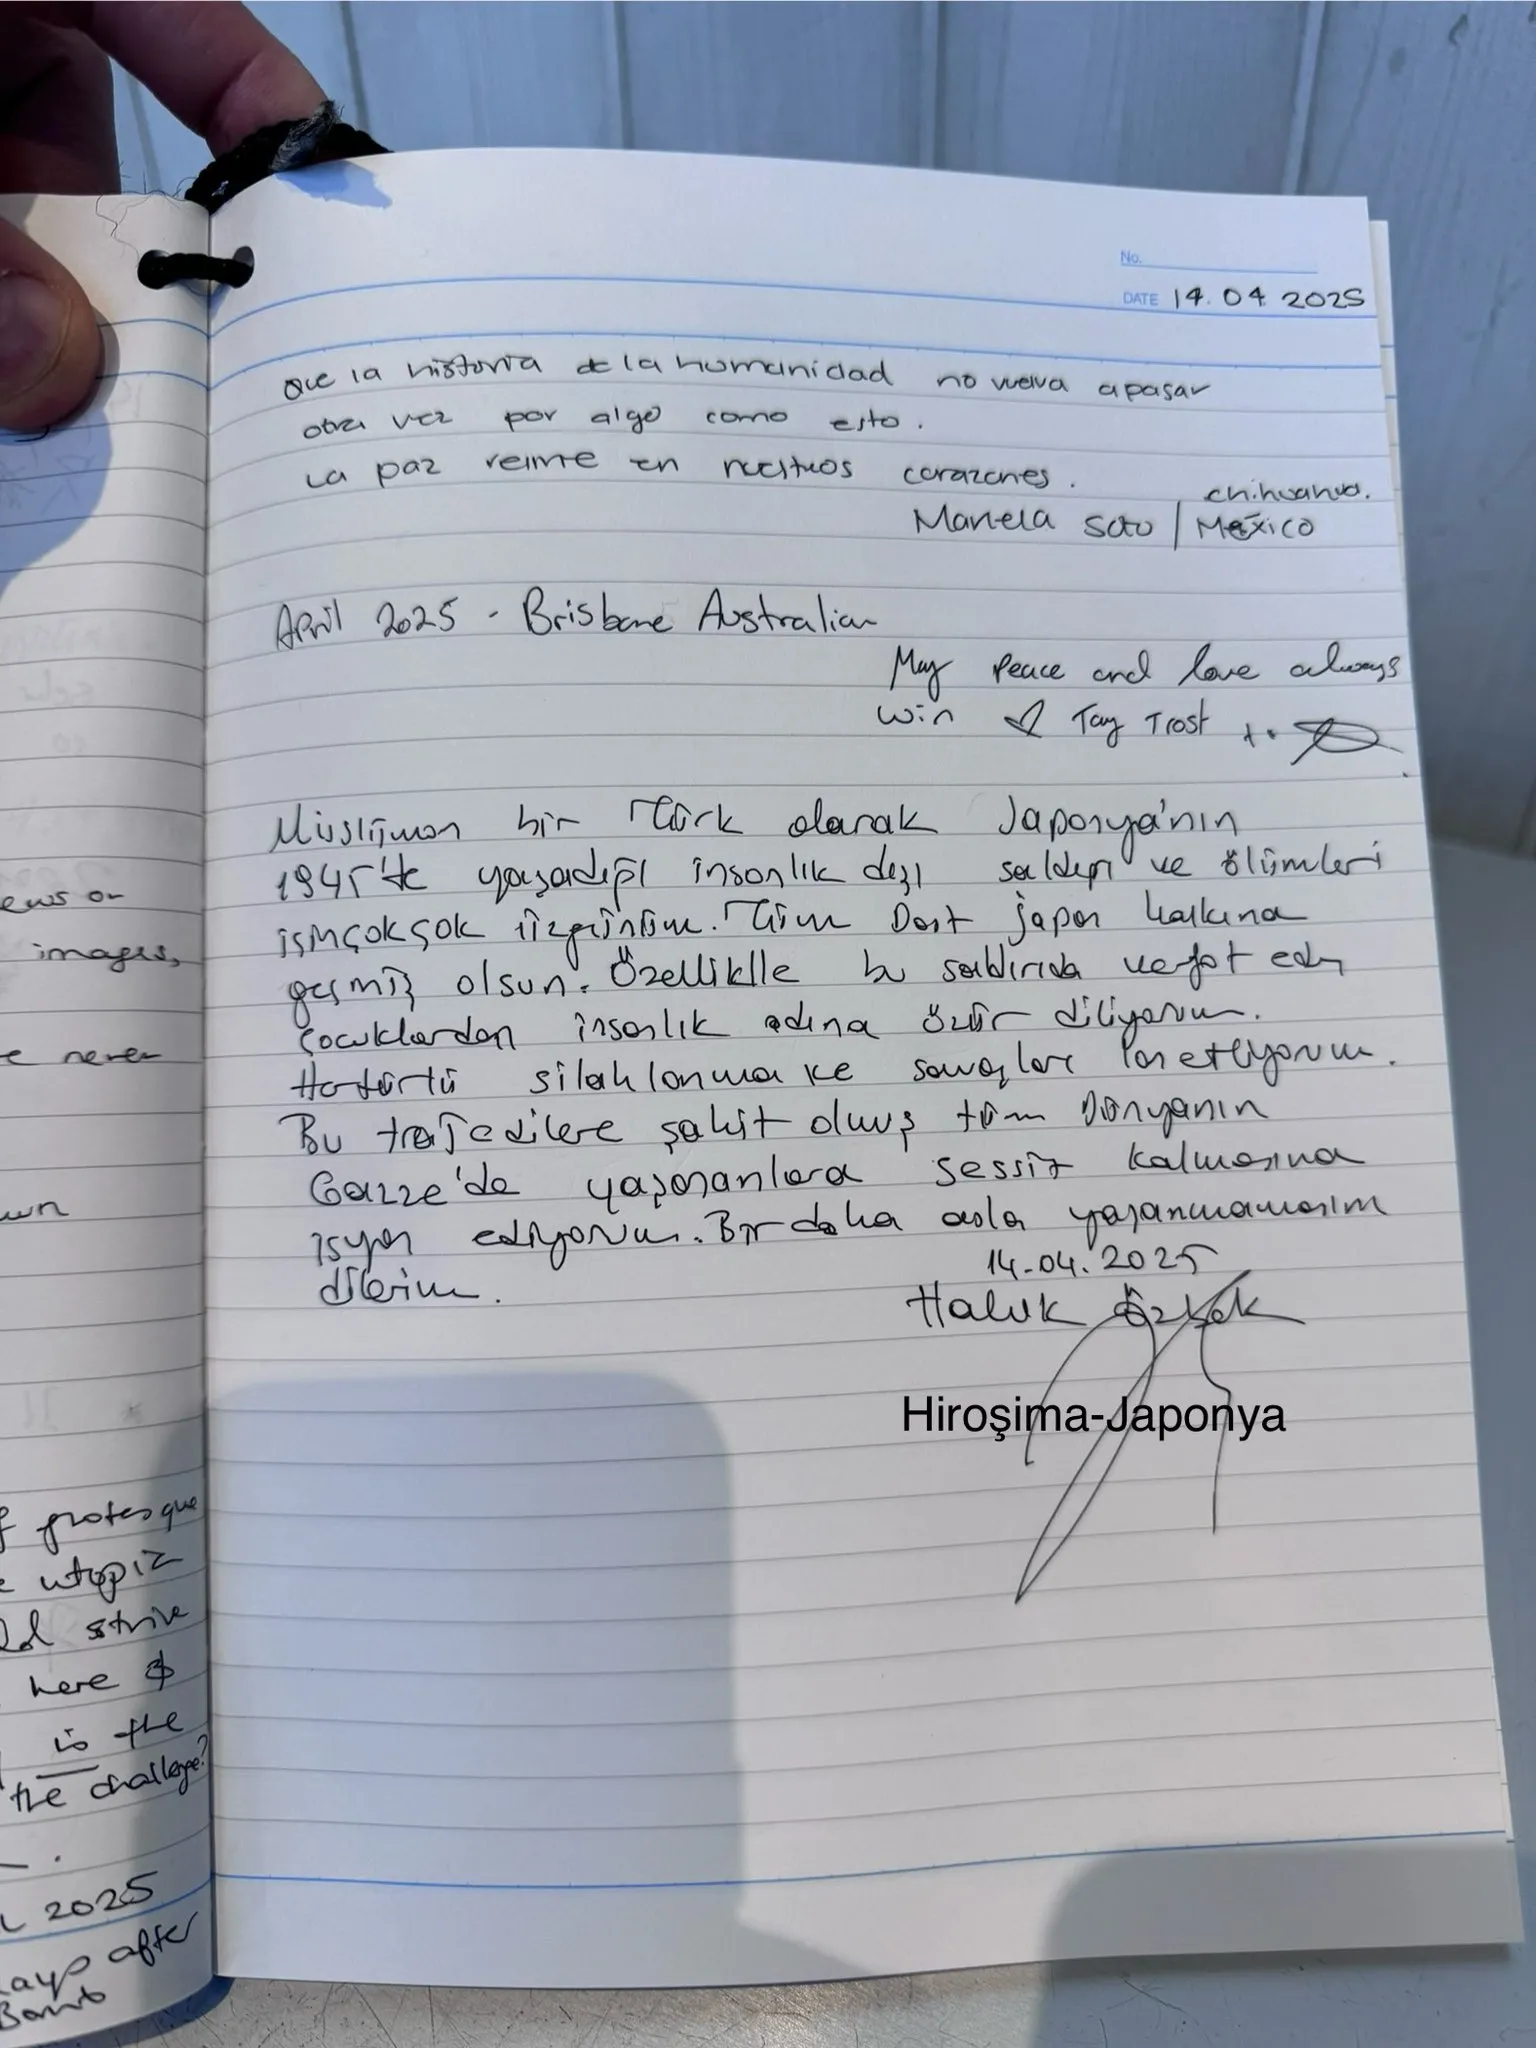 No.
DATE 14.04.2025
Que la historia de la humanidad no vuelva a pasar
otra vez por algo como esto.
La paz reine en nuestros corazones.
chihuahua.
Mariela Soto / México
April 2025 - Brisbane Australian
May Peace and love always
win ♡ Tay Trost
Müslüman bir Türk olarak Japonya'nın
1945'te yaşadığı insanlık dışı saldırı ve ölümleri
için çok çok üzgünüm. Tüm Dost japon halkına
geçmiş olsun. Özelliklle bu saldırıda vefat eden
Çocuklardan insanlık adına özür diliyorum.
Her türlü silahlanma ve savaşları lanetliyorum.
Bu trajedilere şahit olmuş tüm Dünyanın
Gazze'de yaşananlara sessiz kalmasına
isyan ediyorum. Bir daha asla yaşanmamasını
dilerim.
14.04.2025
Haluk
Hiroşima-Japonya
ews or
images,
e never
wn
f grotesque
e utopia
ld strive
here &
is the
the challenge?
2025
days after
Bomb